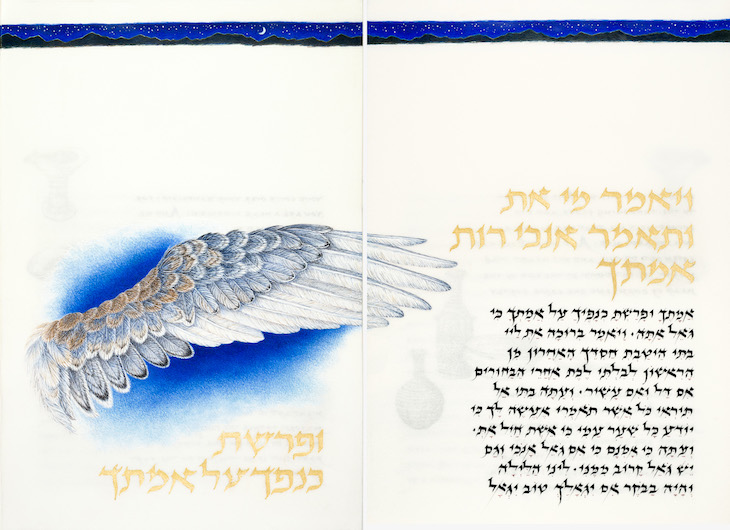 ויאמר מי את
ותאמר אנכי רות
אמתך
אמתך ופרשת כנפיך על אמתך כי
גאל אתה · ויאמר ברוכה את ליי
בתי היטבת חסדך האחרון מן
הראשון לבלתי לכת אחרי הבחורים
אם דל ואם עשיר · ועתה בתי אל
תיראי כל אשר תאמרי אעשה לך כי
יודע כל שער עמי כי אשת חיל את ·
ועתה כי אמנם כי אם גאל אנכי וגם
יש גאל קרוב ממני · ליני הלילה
והיה בבקר אם יגאלך טוב יגאל
ופרשת
כנפך על אמתך